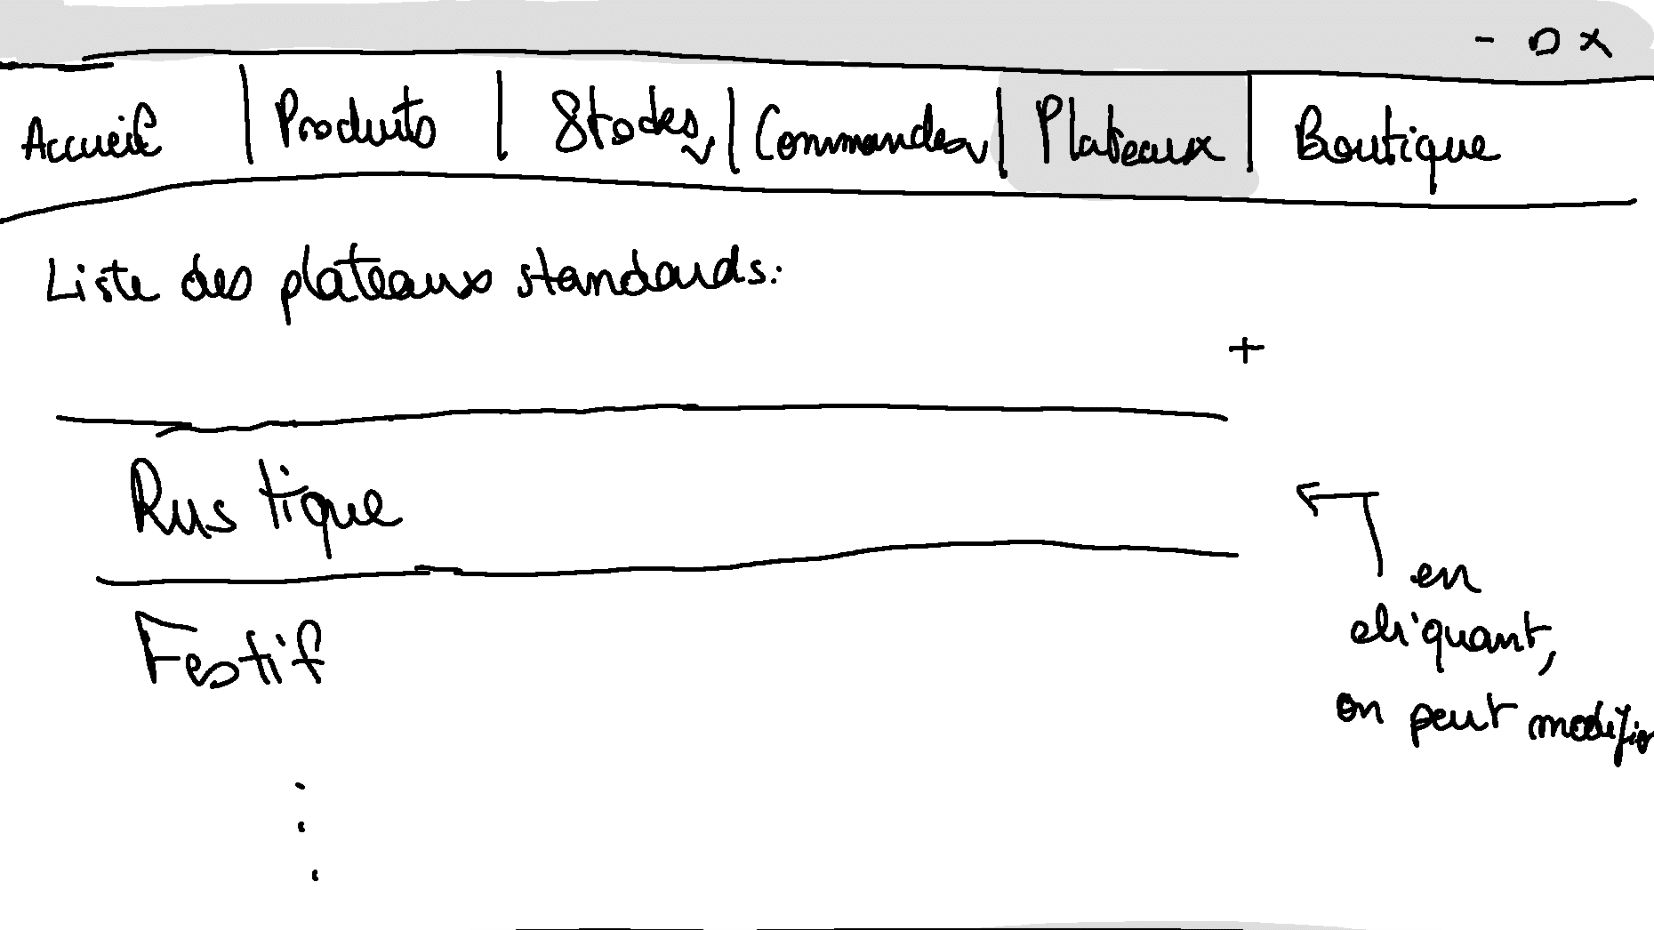 - □ x
Accueil | Produits | Stocks ∨ | Commandes ∨ | Plateaux | Boutique
Liste des plateaux standards:
+
Rustique
Festif
en
cliquant,
on peut modifier